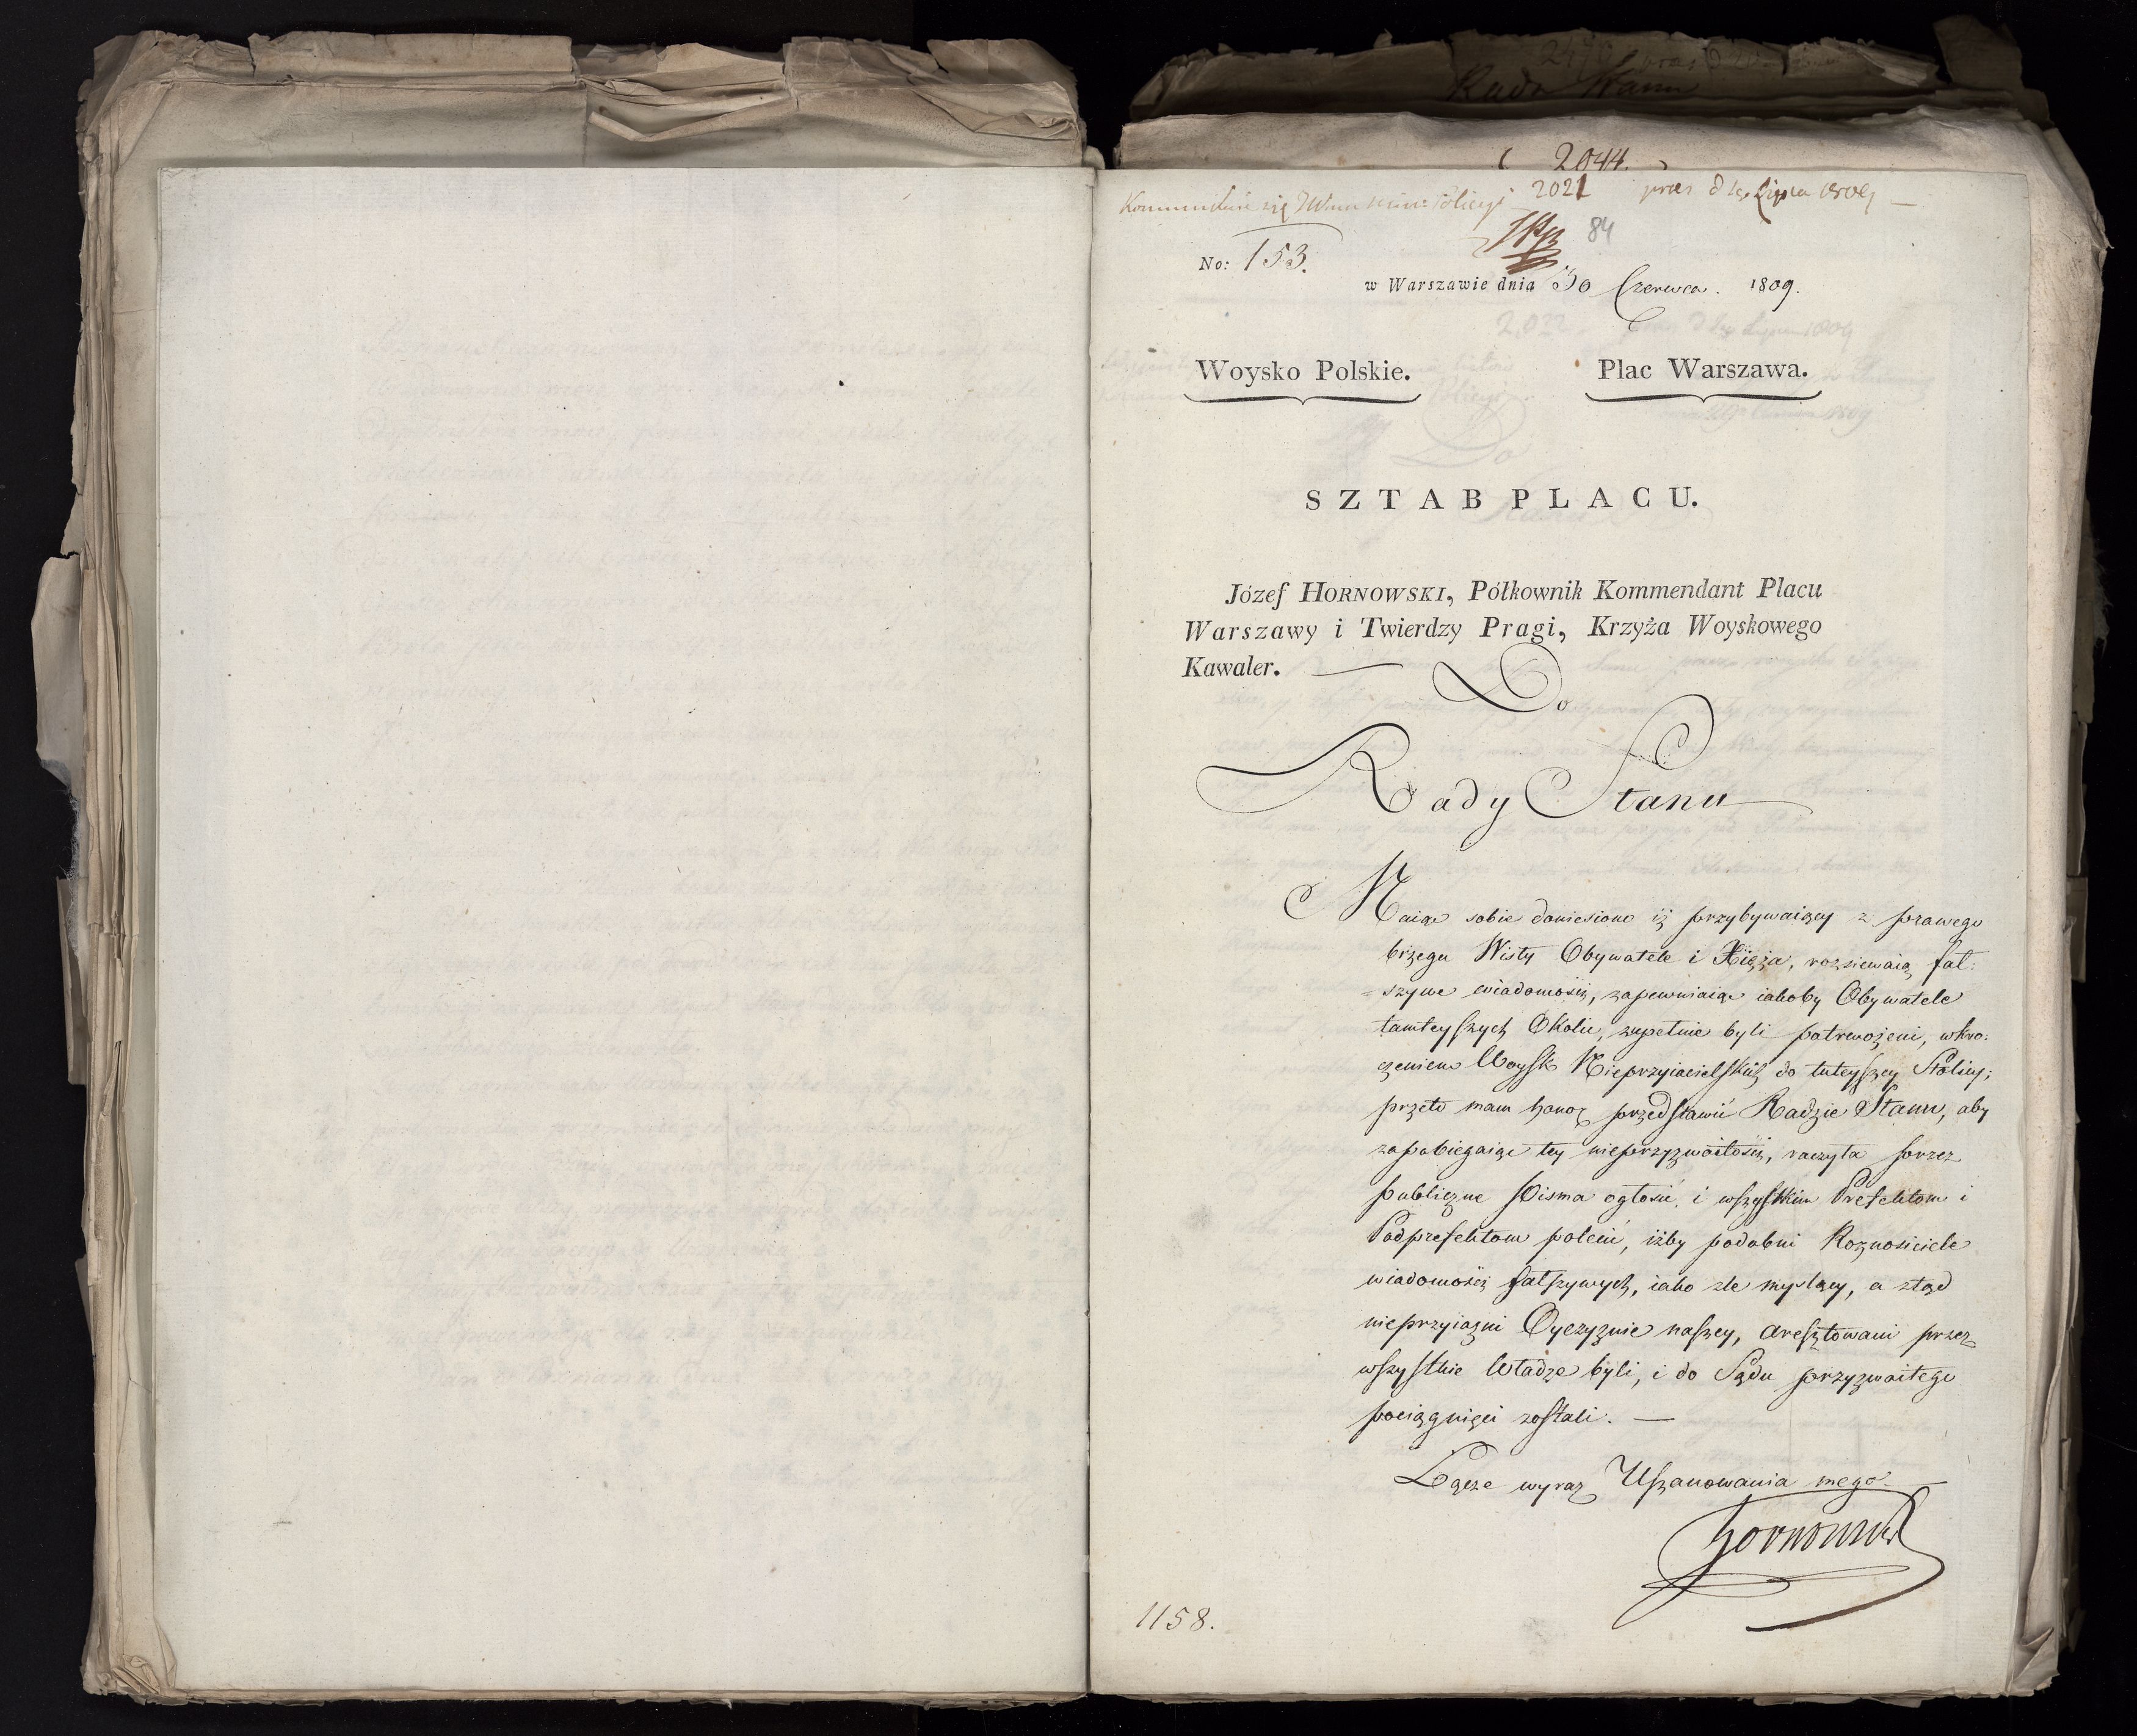 Rada Stanu
( 2044. )
Kommunikuie się JW Policyi 2021 prez d 1go Lipca 1809
84
No: 153.
w Warszawie dnia 30 Czerwca. 1809.
Woysko Polskie. Plac Warszawa.
SZTAB PLACU.
Józef HORNOWSKI, Półkownik Kommendant Placu
Warszawy i Twierdzy Pragi, Krzyża Woyskowego
Kawaler. —
Do
Rady Stanu
Maiąc sobie doniesiono iż przybywaiący z prawego
brzegu Wisły Obywatele i Xięża, rozsiewaią fał:
=szywe wiadomości, zapewniaiąc iakoby Obywatele
tamteyszych Okolic, zupełnie byli potrwożeni, wkro:
czeniem Woysk Nieprzyiacielskich do tuteyszey Stolicy;
przeto mam honor przedstawić Radzie Stanu, aby
zapobiegaiąc tey nieprzyzwoitości, raczyła przez
publiczne Pisma ogłosić, i wszystkim Prefektom i
Podprefektom polecić, iżby podobni Roznosiciele
wiadomości fałszywych, iako źle myślący, a ztąd
nieprzyiaźni Oyczyznie naszey, aresztowani przez
wszystkie Władze byli, i do Sądu przyzwoitego
pociągnięci zostali. —
Łączę wyraz Uszanowania mego. —
Hornowski
1158.